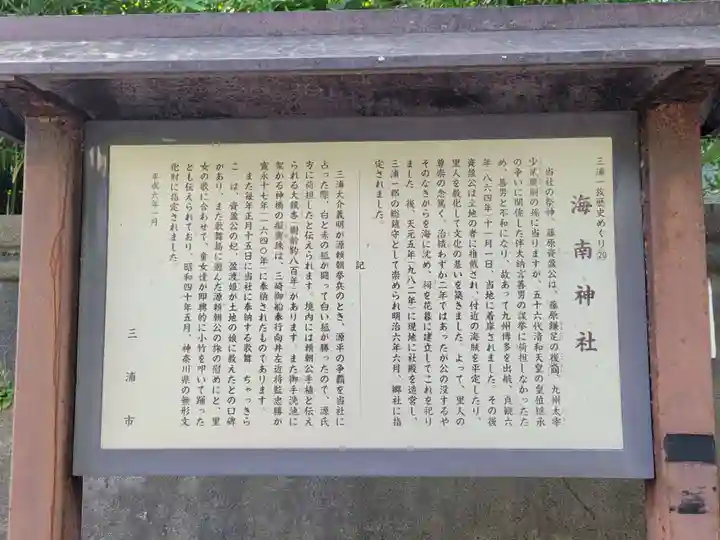 三浦一族歴史めぐり㉙
海南神社
当社の祭神、藤原資盈公は、藤原鎌足の後裔、九州太宰
少貳廣嗣の孫に当りますが、五十六代清和天皇の皇位継承
の争いに関係した伴大納言善男の謀挙に荷担しなかったた
め、善男と不和になり、故あって九州博多を出航、貞観六
年(八六四年)十一月一日、当地に着岸されました。その後
資盈公は土地の者に推戴され、付近の海賊を平定したり、
里人を教化して文化の基いを築きました。よって、里人の
尊崇の念篤く、治績わずか二年ではあったが公の没するや
そのなきがらを海に沈め、祠を花暮に建立してこれを祀り
ました。後、天元五年(九八二年)に現地に社殿を造営し、
三浦一郡の総鎮守として崇められ明治六年六月、郷社に指
定されました。
記
三浦大介義明が源頼朝挙兵のとき、源平の争覇を当社に
占った際、白と赤の狐が闘って白い狐が勝ったので、源氏
方に荷担したと伝えられます。境内には頼朝公手植と伝え
られる大銀杏(樹齢約八百年)があります。また御手洗池に
架かる神橋の擬宝珠は、三崎御船奉行向井左近将監忠勝が
寛永十七年(一六四〇年)に奉納されたものであります。
また毎年正月十五日に当社に奉納する歌舞 ちゃっきら
こ は、資盈公の妃 盈渡姫が土地の娘に教えたとの口碑
があり、また歌舞島に遊んだ源頼朝公の旅の慰めにと、里
女の歌に合あせて、童女達が即興的に小竹を叩いて踊った
とも伝えられており、昭和四十年五月、神奈川県の無形文
化財に指定されました。
平成六年一月
三浦市